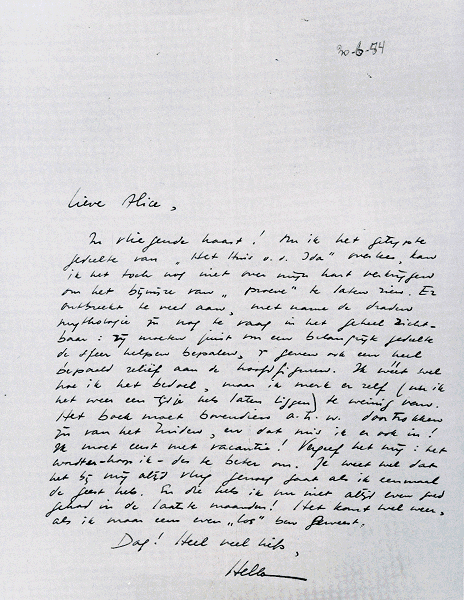 30-6-54
Lieve Alice,
In vliegende haast! Nu ik het getypte
gedeelte van "Het Huis o.d. Ida" overlees, kan
ik het toch nog niet over mijn hart verkrijgen
om het bijwijze van "proeve" te laten zien. Er
ontbreekt te veel aan, met name de draden
mythologie zijn nog te vaag in het geheel zicht-
baar: zij moeten juist voor een belangrijk gedeelte
de sfeer helpen bepalen, geven ook een heel
bepaald reliëf aan de hoofdfiguren. Ik weet wel
hoe ik het bedoel, maar ik merk er zelf (nu ik
het weer een tijdje heb laten liggen) te weinig van.
Het boek moet bovendien a.h.w. doortrokken
zijn van het Zuiden, en dat mis ik er ook in!
Ik moet eerst met vacantie! Vergeef het mij: het
wordt er - hoop ik - des te beter om. Je weet wel dat
het bij mij altijd vlug genoeg gaat als ik eenmaal
de geest heb. En die heb ik nu niet altijd even goed
gehad in de laatste maanden! Het komt wel weer,
als ik maar eens even "los" ben geweest.
Dag! Heel veel liefs,
Hella